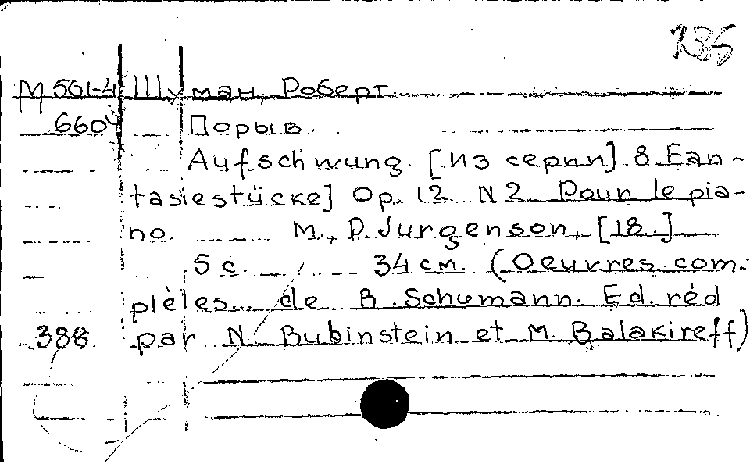 235
М 561-4 Шуман, Роберт.
6604 Порыв.
Aufschwung. [из серии]. 8 Fan-
tasiestücke] Op. 12 N 2 Pour le pia-
no. М., P. Jurgenson, [18.]
5 с. 34 см. (Oeuvres com-
plètes de R. Schumann. Ed. réd
388 par N. Rubinstein et M. Balakireff)